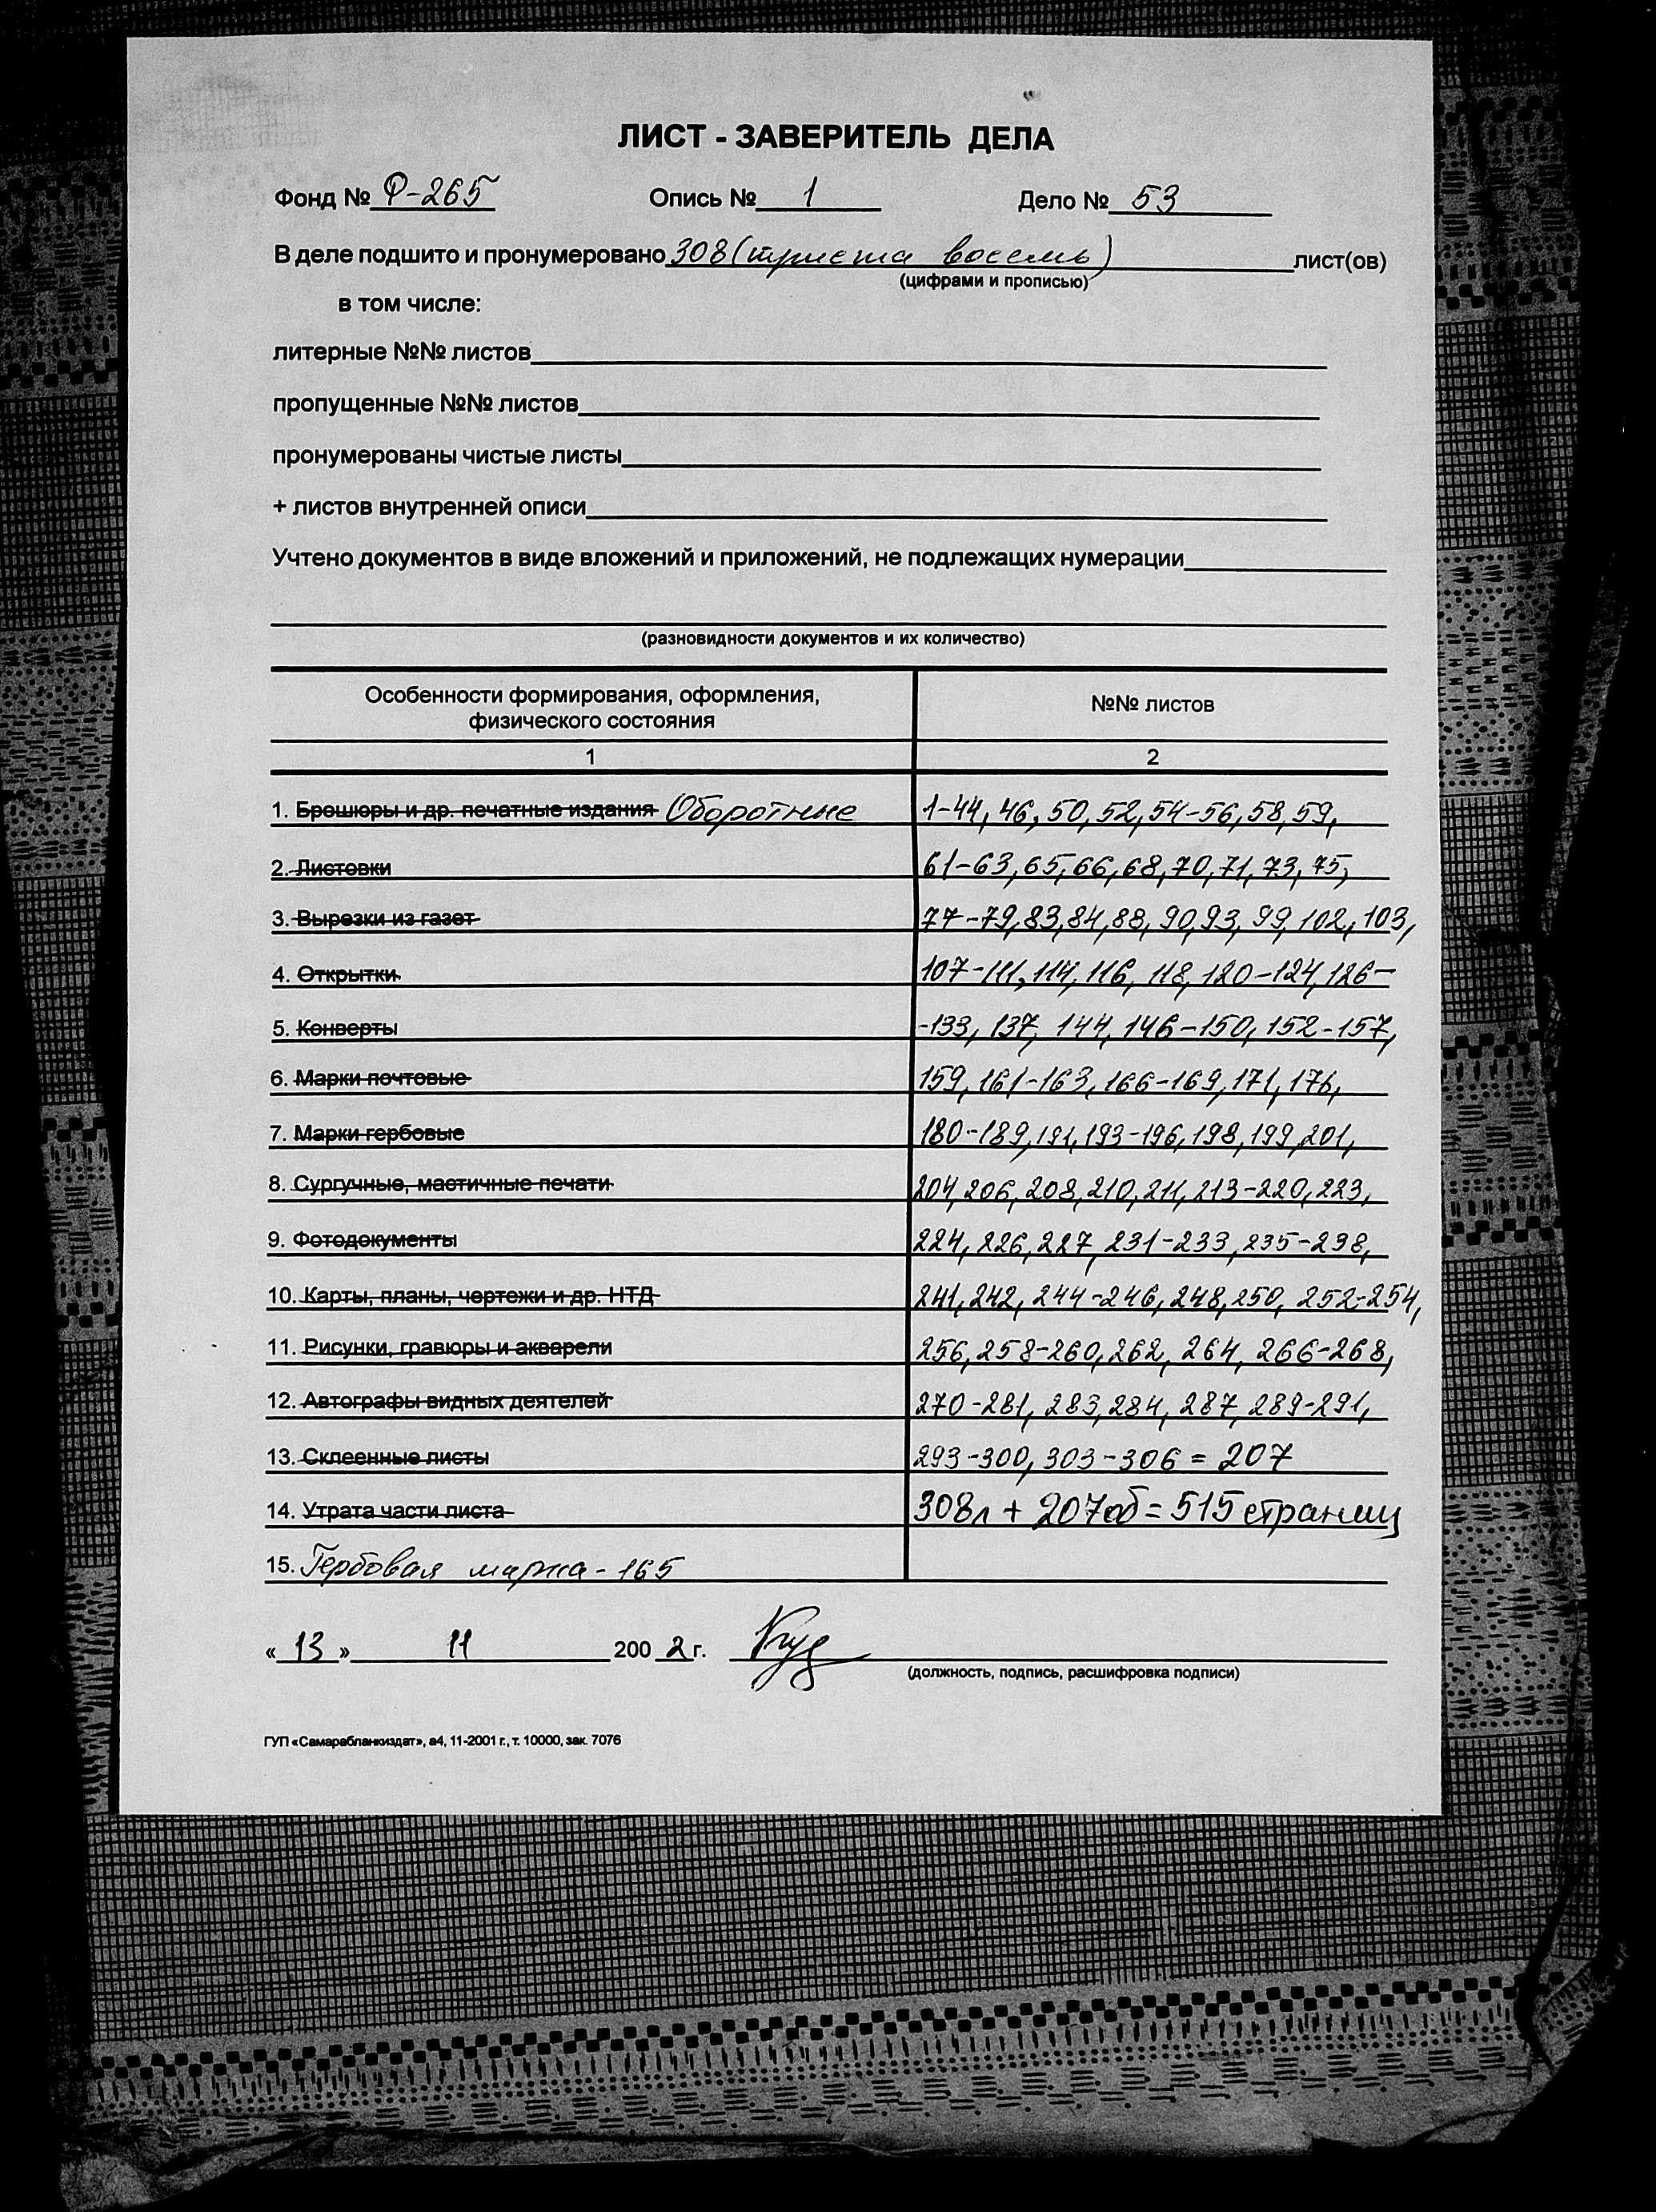 ЛИСТ - ЗАВЕРИТЕЛЬ ДЕЛА
Фонд № Ф-265 Опись № 1 Дело № 53
В деле подшито и пронумеровано 308 (триста восемь) лист(ов)
(цифрами и прописью)
в том числе:
литерные №№ листов
пропущенные №№ листов
пронумерованы чистые листы
+ листов внутренней описи
Учтено документов в виде вложений и приложений, не подлежащих нумерации
(разновидности документов и их количество)
Особенности формирования, оформления, физического состояния №№ листов
1 2
1. Брошюры и др. печатные издания Оборотные 1-44, 46, 50, 52, 54-56, 58, 59,
2. Листовки 61-63, 65, 66, 68, 70, 71, 73, 75,
3. Вырезки из газет 77-79, 83, 84, 88, 90, 93, 99, 102, 103,
4. Открытки 107-111, 114, 116, 118, 120-124, 126-
5. Конверты -133, 137, 144, 146-150, 152-157,
6. Марки почтовые 159, 161-163, 166-169, 171, 176,
7. Марки гербовые 180-189, 191, 193-196, 198, 199, 201,
8. Сургучные, мастичные печати 204, 206, 208, 210, 211, 213-220, 223,
9. Фотодокументы 224, 226, 227, 231-233, 235-238,
10. Карты, планы, чертежи и др. НТД 241, 242, 244-246, 248, 250, 252-254,
11. Рисунки, гравюры и акварели 256, 258-260, 262, 264, 266-268,
12. Автографы видных деятелей 270-281, 283, 284, 287, 289-291,
13. Склеенные листы 293-300, 303-306 = 207
14. Утрата части листа 308л + 207об = 515 страниц
15. Гербовая марка - 165
« 13 » 11 200 2 г.
(должность, подпись, расшифровка подписи)
ГУП «Самарабланкиздат», а4, 11-2001 г., т. 10000, зак. 7076